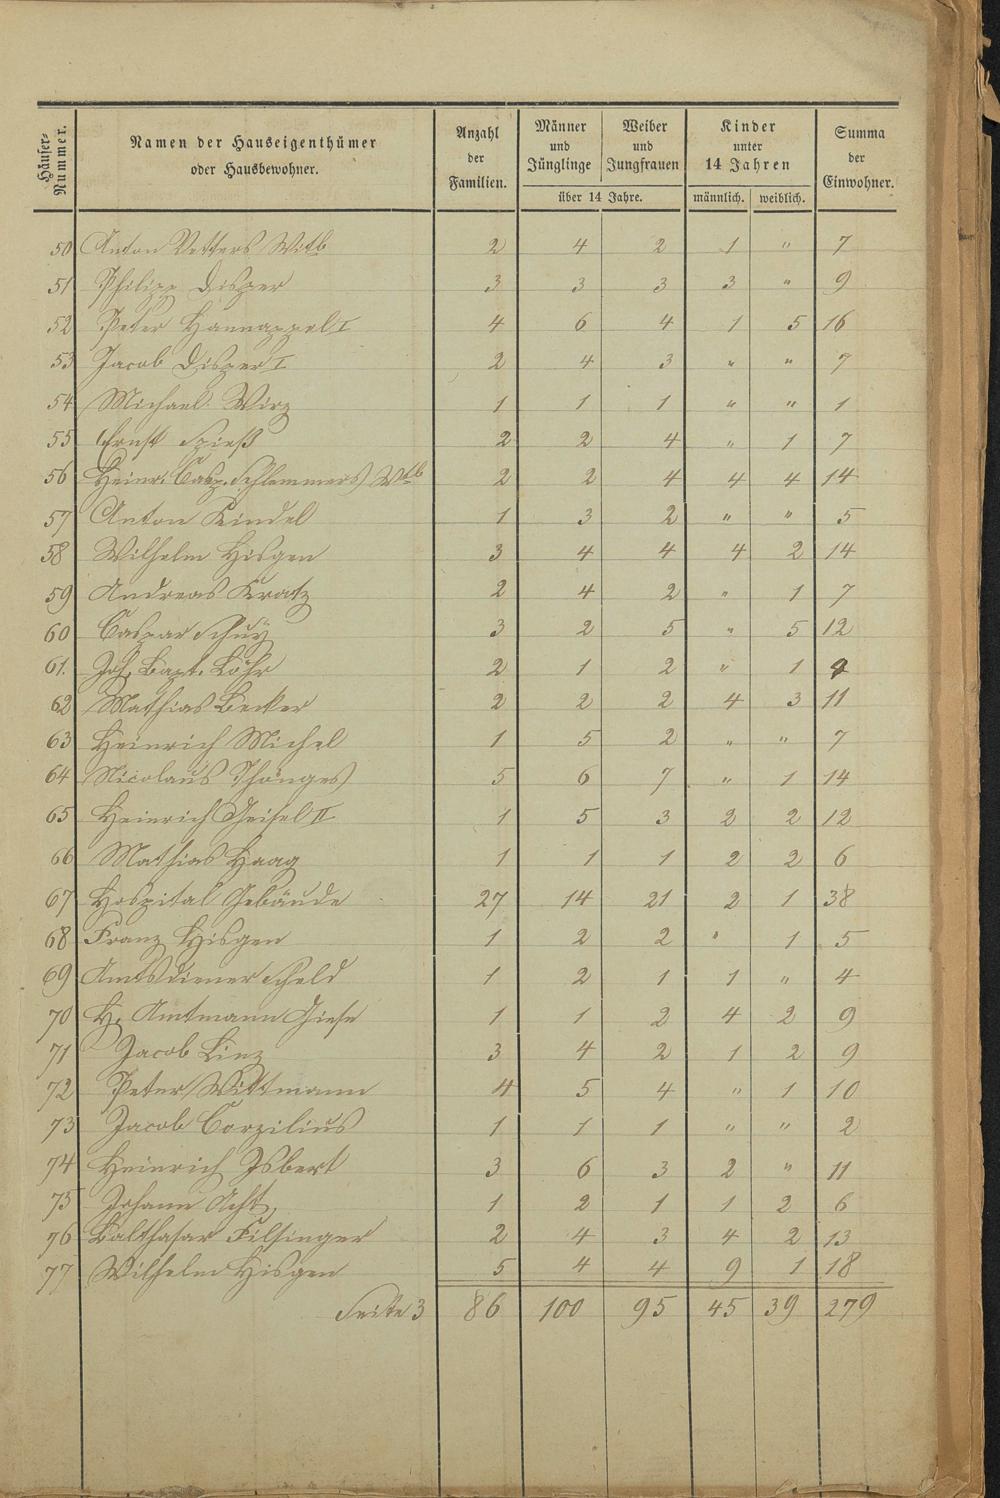 Häuser-Nummer.
Namen der Hauseigenthümer
oder Hausbewohner.
Anzahl
der
Familien.
Männer
und
Jünglinge
Weiber
und
Jungfrauen
über 14 Jahre.
Kinder
unter
14 Jahren
männlich. weiblich.
Summa
der
Einwohner.
50 Anton Vetters Witb 2 4 2 1 " 7
51 Philipp Disper 3 3 3 3 " 9
52 Peter Hannappel I 4 6 4 1 5 16
53 Jacob Disper I 2 4 3 " " 7
54 Michael Wirz 1 1 1 " " 1
55 Ernst Spieß 2 2 4 " 1 7
56 Heinr. Casp. Schlemmers Wtb 2 2 4 4 4 14
57 Anton Kindel 1 3 2 " " 5
58 Wilhelm Hisgen 3 4 4 4 2 14
59 Andreas Kratz 2 4 2 " 1 7
60 Caspar Schuÿ 3 2 5 " 5 12
61. Joh. Bapt. Löhr 2 1 2 " 1 4
62 Mathias Becker 2 2 2 4 3 11
63 Heinrich Michel 1 5 2 " " 7
64 Nicolaus Thönges 5 6 7 " 1 14
65 Heinrich Geisel II 1 5 3 2 2 12
66 Mathias Haag 1 1 1 2 2 6
67 Hospital Gebäude 27 14 21 2 1 38
68 Franz Hisgen 1 2 2 " 1 5
69 Amtsdiener Scheld 1 2 1 1 " 4
70 H. Amtmann Giese 1 1 2 4 2 9
71 Jacob Linz 3 4 2 1 2 9
72 Peter Wittmann 4 5 4 " 1 10
73 Jacob Corzilius 1 1 1 " " 2
74 Heinrich Isbert 3 6 3 2 " 11
75 Johann Acht 1 2 1 1 2 6
76 Balthasar Filsinger 2 4 3 4 2 13
77 Wilhelm Hisgen 5 4 4 9 1 18
Seite 3 86 100 95 45 39 279